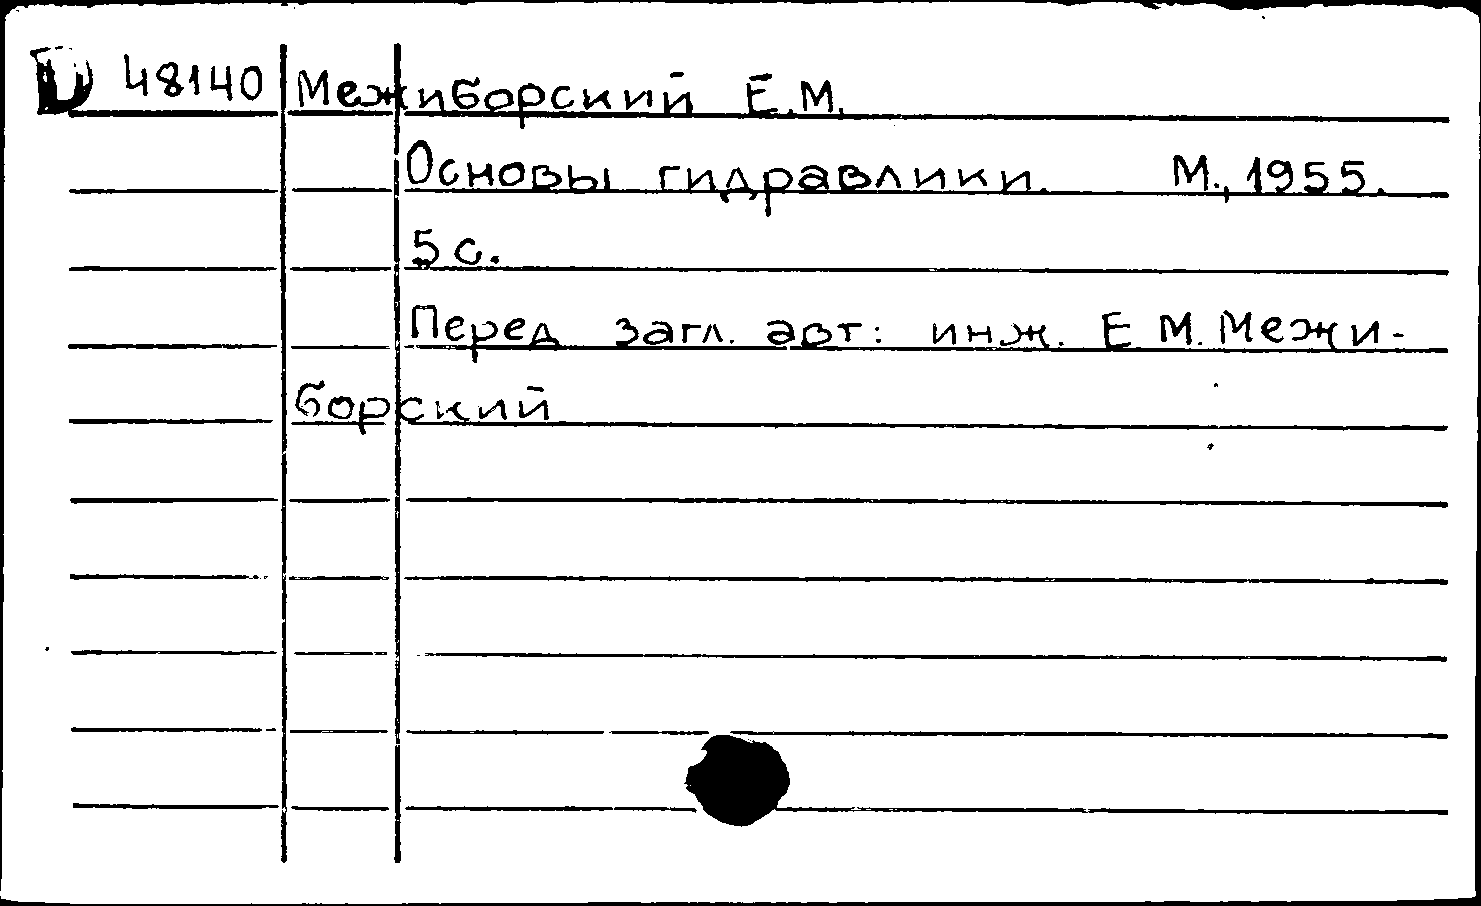 D 48140 Межиборский Е.М.
Основы гидравлики. М., 1955.
5 с.
Перед загл. авт: инж. Е М. Межи-
борский